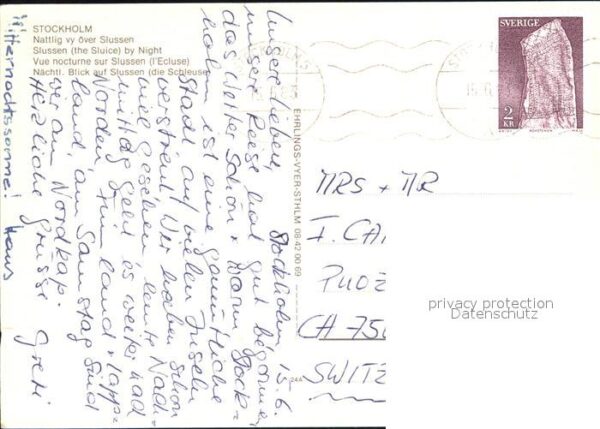 STOCKHOLM
Nattlig vy över Slussen
Slussen (the Sluice) by Night
Vue nocturne sur Slussen (l'Ecluse)
Nächtl. Blick auf Slussen (die Schleuse)
Stockholm, 15.6.
Unser lieben,
unsere Reise hat gut begonnen
das Wetter schön + warm. Stock-
holm ist eine gemütliche
Stadt auf vielen Inseln
Wir haben schon
viel gesehen, heute Nach-
mittag geht es weiter nach
Norden, Finnland + Lapp-
land, am Samstag sind
wir am Nordkap.
Herzliche Grüsse Greti
Mitternachtssonne! Hans
EHRLINGS-VYER-STHLM 08-42 00 69
STOCKHOLM
SVERIGE
2
KR
MRS + MR
I. CA
PUOZ
CH 750
SWITZ
privacy protection
Datenschutz